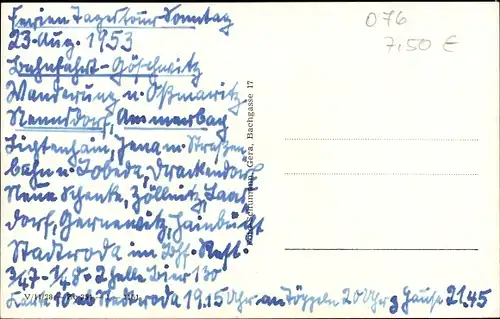 Ferien Tagestour Sonntag
23. Aug. 1953
Bahnfahrt - Göschwitz
Wanderung n. Oßmaritz
Nennsdorf, Ammerbach
Lichtenhain, Jena m. Straßen
bahn n. Lobeda, Drackendorf
Neue Schenke, Zöllnitz, Laas
dorf, Gernewitz, Hainbücht
Stadtroda im Bhf. Rest.
¾7 - ¼8 - 2 helle Bier 130
Stadtroda 19.15 Uhr an Töppeln 20 Uhr Hause 21.45
076
7,50 €
Gera, Bachgasse 17